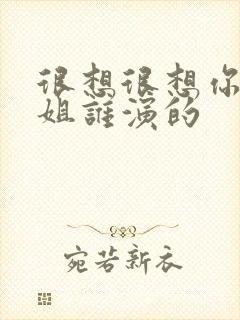 很想很想你
姐谁演的
宛若新衣